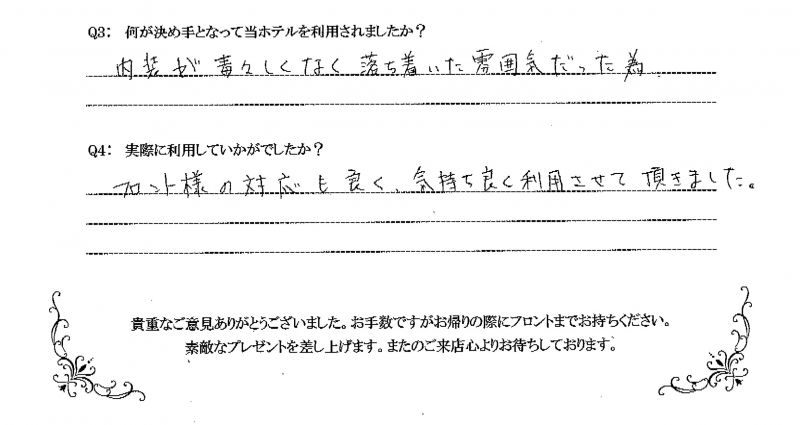 Q3： 何が決め手となって当ホテルを利用されましたか？
内装が毒々しくなく落ち着いた雰囲気だった為
Q4： 実際に利用していかがでしたか？
フロント様の対応も良く、気持ち良く利用させて頂きました。
貴重なご意見ありがとうございました。お手数ですがお帰りの際にフロントまでお持ちください。
素敵なプレゼントを差し上げます。またのご来店心よりお待ちしております。